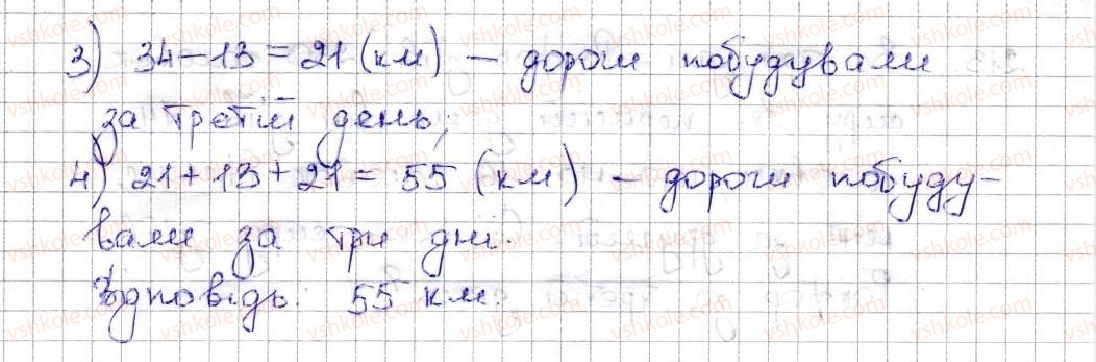 3) 34-13=21 (км) - дороги побудували
за третій день,
4) 21+13+21= 55 (км) - дороги побуду-
вали за три дні.
Відповідь: 55 км.